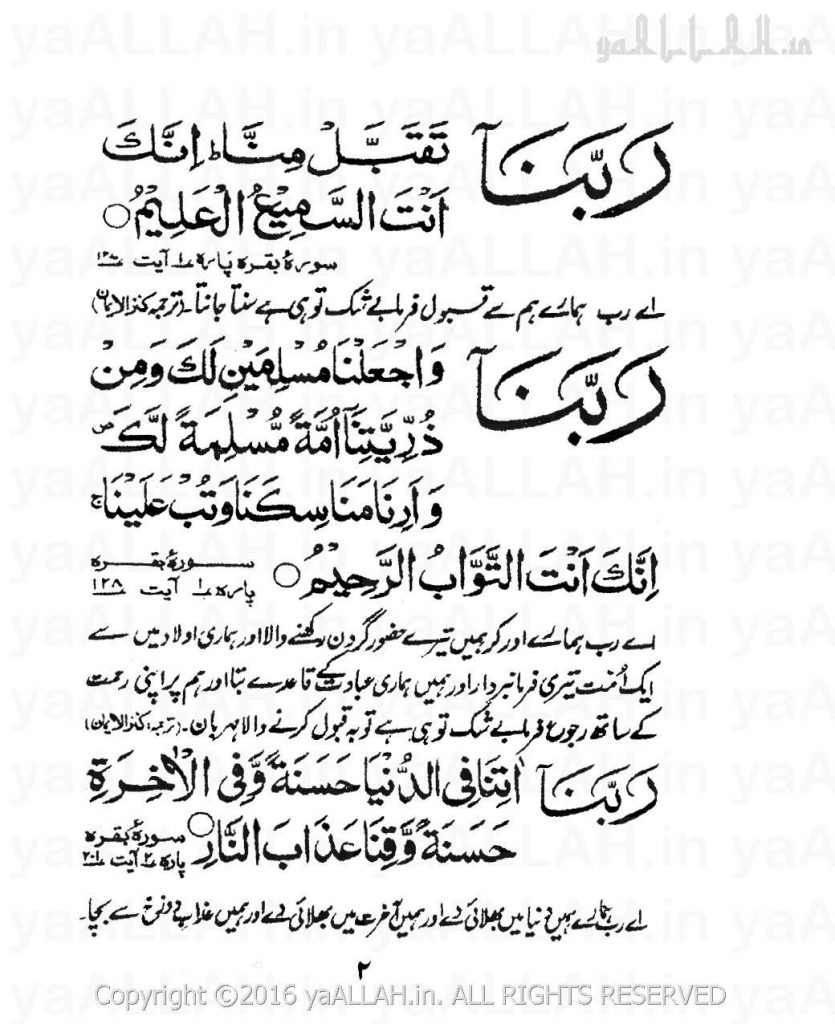 yaALLAH.in
رَبَّنَآ تَقَبَّلْ مِنَّا ؕ اِنَّكَ
اَنْتَ السَّمِیْعُ الْعَلِیْمُ ○
سورۂ بقرہ پارہ ۱ آیت ۱۲۷
اے رب ہمارے ہم سے قبول فرما بے شک تو ہی ہے سنتا جانتا۔ (ترجمہ کنزالایمان)
رَبَّنَآ وَاجْعَلْنَا مُسْلِمَیْنِ لَكَ وَمِنْ
ذُرِّیَّتِنَاۤ اُمَّةً مُّسْلِمَةً لَّكَ ۪
وَاَرِنَا مَنَاسِكَنَا وَتُبْ عَلَیْنَا ۚ
اِنَّكَ اَنْتَ التَّوَّابُ الرَّحِیْمُ ○ سورۂ بقرہ
پارہ ۱ آیت ۱۲۸
اے رب ہمارے اور کر ہمیں تیرے حضور گردن رکھنے والا اور ہماری اولاد میں سے
ایک اُمت تیری فرمانبردار اور ہمیں ہماری عبادت کے قاعدے بتا اور ہم پر اپنی رحمت
کے ساتھ رجوع فرما بے شک تو ہی ہے توبہ قبول کرنے والا مہربان۔ (ترجمہ: کنزالایمان)
رَبَّنَآ اٰتِنَا فِی الدُّنْیَا حَسَنَةً وَّفِی الْاٰخِرَةِ
حَسَنَةً وَّقِنَا عَذَابَ النَّارِ ○ سورۂ بقرہ
پارہ ۲ آیت ۲۰۱
اے رب ہمارے ہمیں دنیا میں بھلائی دے اور ہمیں آخرت میں بھلائی دے اور ہمیں عذاب دوزخ سے بچا۔
۲
Copyright ©2016 yaALLAH.in. ALL RIGHTS RESERVED